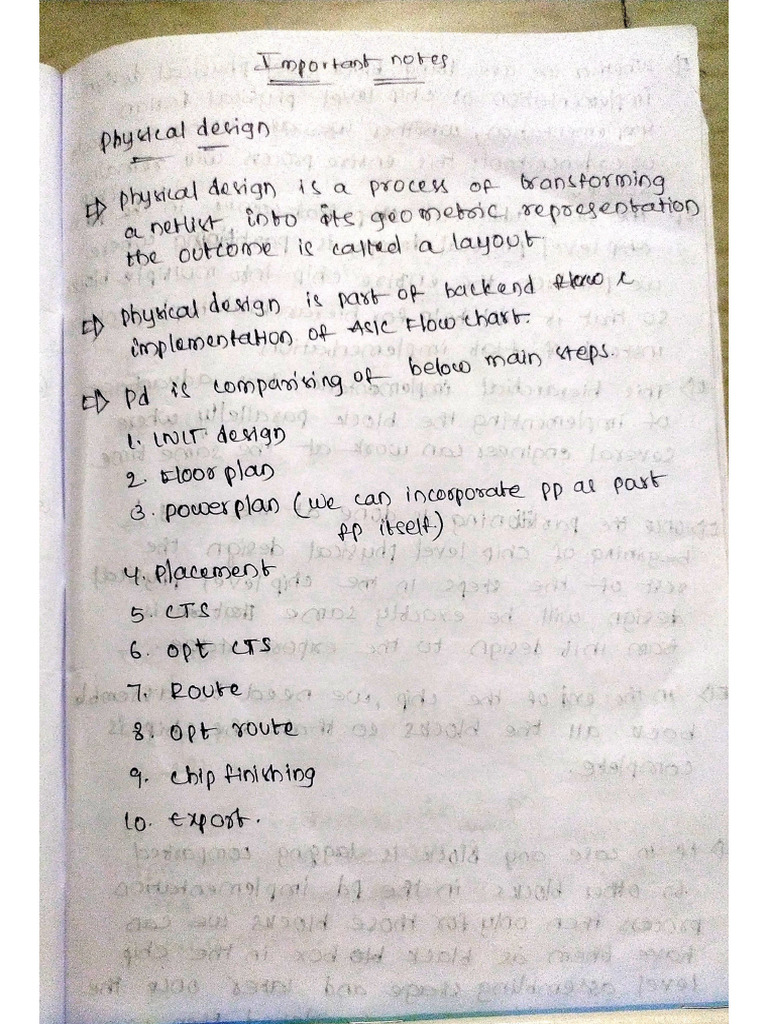 Important notes
physical design
⇒ physical design is a process of transforming
a netlist into its geometric representation
the outcome is called a layout
⇒ physical design is part of backend flow &
implementation of ASIC Flow chart.
⇒ Pd is comparising of below main steps.
1. INIT design
2. Floor plan
3. powerplan (we can incorporate pp as part
fp itself)
4. placement
5. CTS
6. opt CTS
7. Route
8. opt route
9. chip finishing
10. Export.